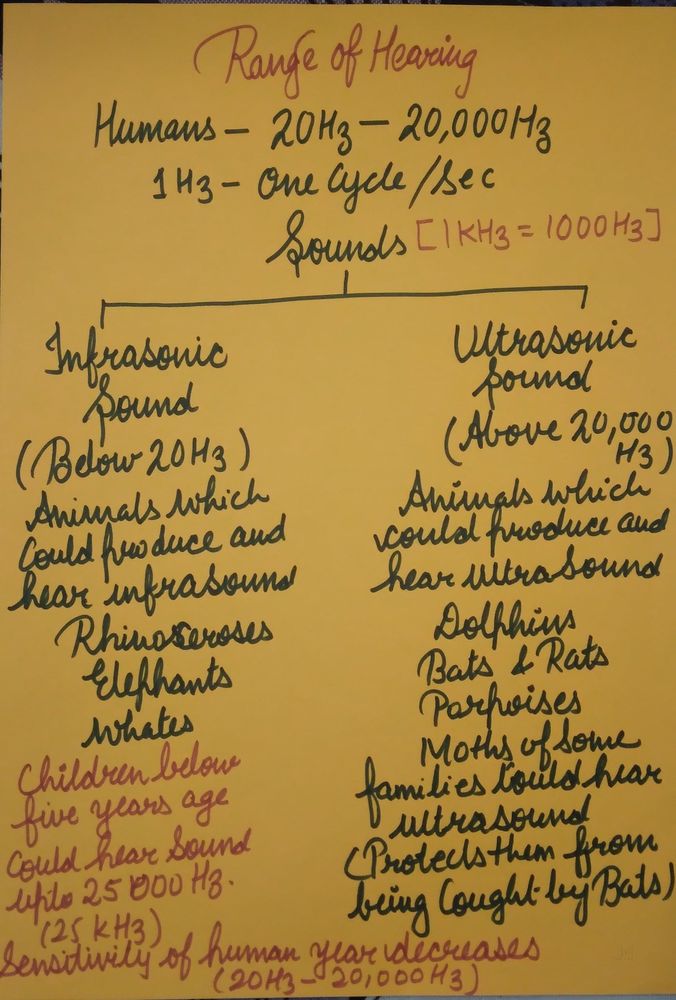 Range of Hearing
Humans – 20Hz – 20,000Hz
1Hz – One Cycle/Sec
Sounds [1KHz = 1000Hz]
Infrasonic
Sound
(Below 20Hz)
Animals which
Could produce and
hear infrasound
Rhinoceroses
Elephants
Whales
Children below
five years age
Could hear Sound
upto 25000Hz.
(25 kHz)
Ultrasonic
Sound
(Above 20,000
Hz)
Animals which
could produce and
hear UltraSound
Dolphins
Bats & Rats
Parpoises
Moths of Some
families Could hear
ultrasound
(Protects them from
being Cought by Bats)
Sensitivity of human year decreases
(20Hz – 20,000Hz)